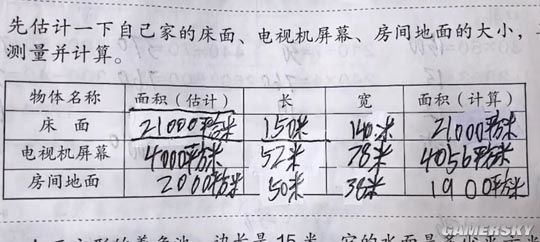 先估计一下自己家的床面、电视机屏幕、房间地面的大小，
测量并计算。
物体名称 面积（估计） 长 宽 面积（计算）
床 面 21000平方米 150米 140米 21000平方米
电视机屏幕 4000平方米 52米 78米 4056平方米
房间地面 2000平方米 50米 38米 1900平方米
边长是15米
GAMERSKY